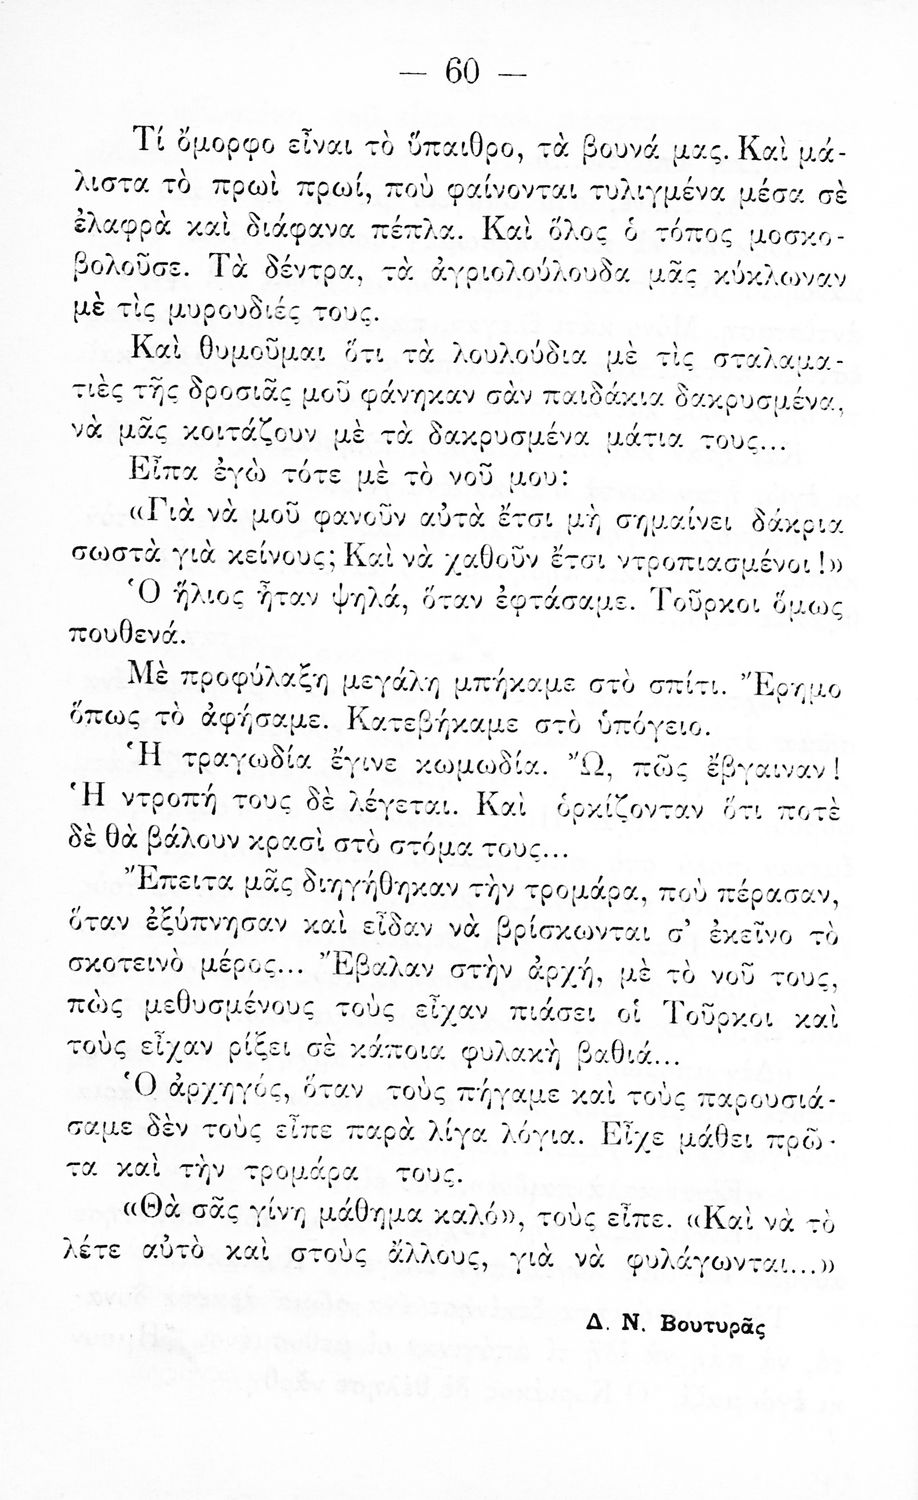 — 60 —
Τί ὄμορφο εἶναι τὸ ὕπαιθρο, τὰ βουνά μας. Καὶ μά-
λιστα τὸ πρωὶ πρωί, ποὺ φαίνονται τυλιγμένα μέσα σὲ
ἐλαφρὰ καὶ διάφανα πέπλα. Καὶ ὅλος ὁ τόπος μοσκο-
βολοῦσε. Τὰ δέντρα, τὰ ἀγριολούλουδα μᾶς κύκλωναν
μὲ τὶς μυρουδιές τους.
Καὶ θυμοῦμαι ὅτι τὰ λουλούδια μὲ τὶς σταλαμα-
τιὲς τῆς δροσιᾶς μοῦ φάνηκαν σὰν παιδάκια δακρυσμένα,
νὰ μᾶς κοιτάζουν μὲ τὰ δακρυσμένα μάτια τους...
Εἶπα ἐγὼ τότε μὲ τὸ νοῦ μου:
«Γιὰ νὰ μοῦ φανοῦν αὐτὰ ἔτσι μὴ σημαίνει δάκρια
σωστὰ γιὰ κείνους; Καὶ νὰ χαθοῦν ἔτσι ντροπιασμένοι!»
Ὁ ἥλιος ἦταν ψηλά, ὅταν ἐφτάσαμε. Τοῦρκοι ὅμως
πουθενά.
Μὲ προφύλαξη μεγάλη μπήκαμε στὸ σπίτι. Ἔρημο
ὅπως τὸ ἀφήσαμε. Κατεβήκαμε στὸ ὑπόγειο.
Ἡ τραγωδία ἔγινε κωμωδία. Ὤ, πῶς ἔβγαιναν!
Ἡ ντροπή τους δὲ λέγεται. Καὶ ὁρκίζονταν ὅτι ποτὲ
δὲ θὰ βάλουν κρασὶ στὸ στόμα τους...
Ἔπειτα μᾶς διηγήθηκαν τὴν τρομάρα, ποὺ πέρασαν,
ὅταν ἐξύπνησαν καὶ εἶδαν νὰ βρίσκωνται σ' ἐκεῖνο τὸ
σκοτεινὸ μέρος... Ἔβαλαν στὴν ἀρχή, μὲ τὸ νοῦ τους,
πὼς μεθυσμένους τοὺς εἶχαν πιάσει οἱ Τοῦρκοι καὶ
τοὺς εἶχαν ρίξει σὲ κάποια φυλακὴ βαθιά...
Ὁ ἀρχηγός, ὅταν τοὺς πήγαμε καὶ τοὺς παρουσιά-
σαμε δὲν τοὺς εἶπε παρὰ λίγα λόγια. Εἶχε μάθει πρῶ-
τα καὶ τὴν τρομάρα τους.
«Θὰ σᾶς γίνη μάθημα καλό», τοὺς εἶπε. «Καὶ νὰ τὸ
λέτε αὐτὸ καὶ στοὺς ἄλλους, γιὰ νὰ φυλάγωνται...»
Δ. Ν. Βουτυρᾶς